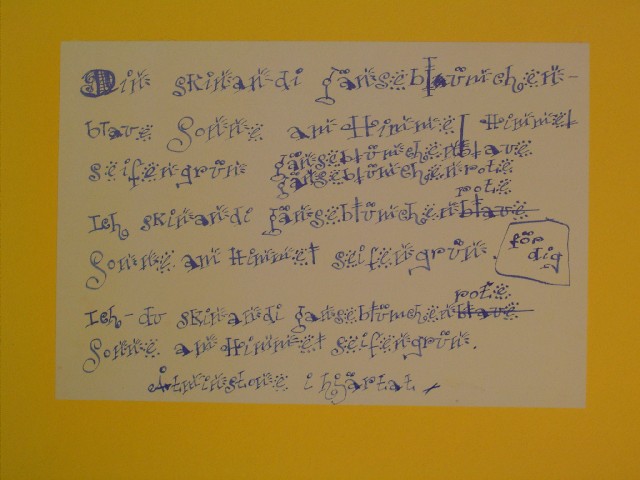 Din skinan-di gänseblaümchen-
blaue Sonne am Himmel Himmel
seifengrün gänseblümchenblaue
gänseblümchenrote
rote
Ich skinandi gänseblümchenblaue
Sonne am Himmel seifengrün.
för
dig
rote
Ich-du skinandi gänseblümchenblaue
Sonne am Himmel seifengrün.
i hjärtat